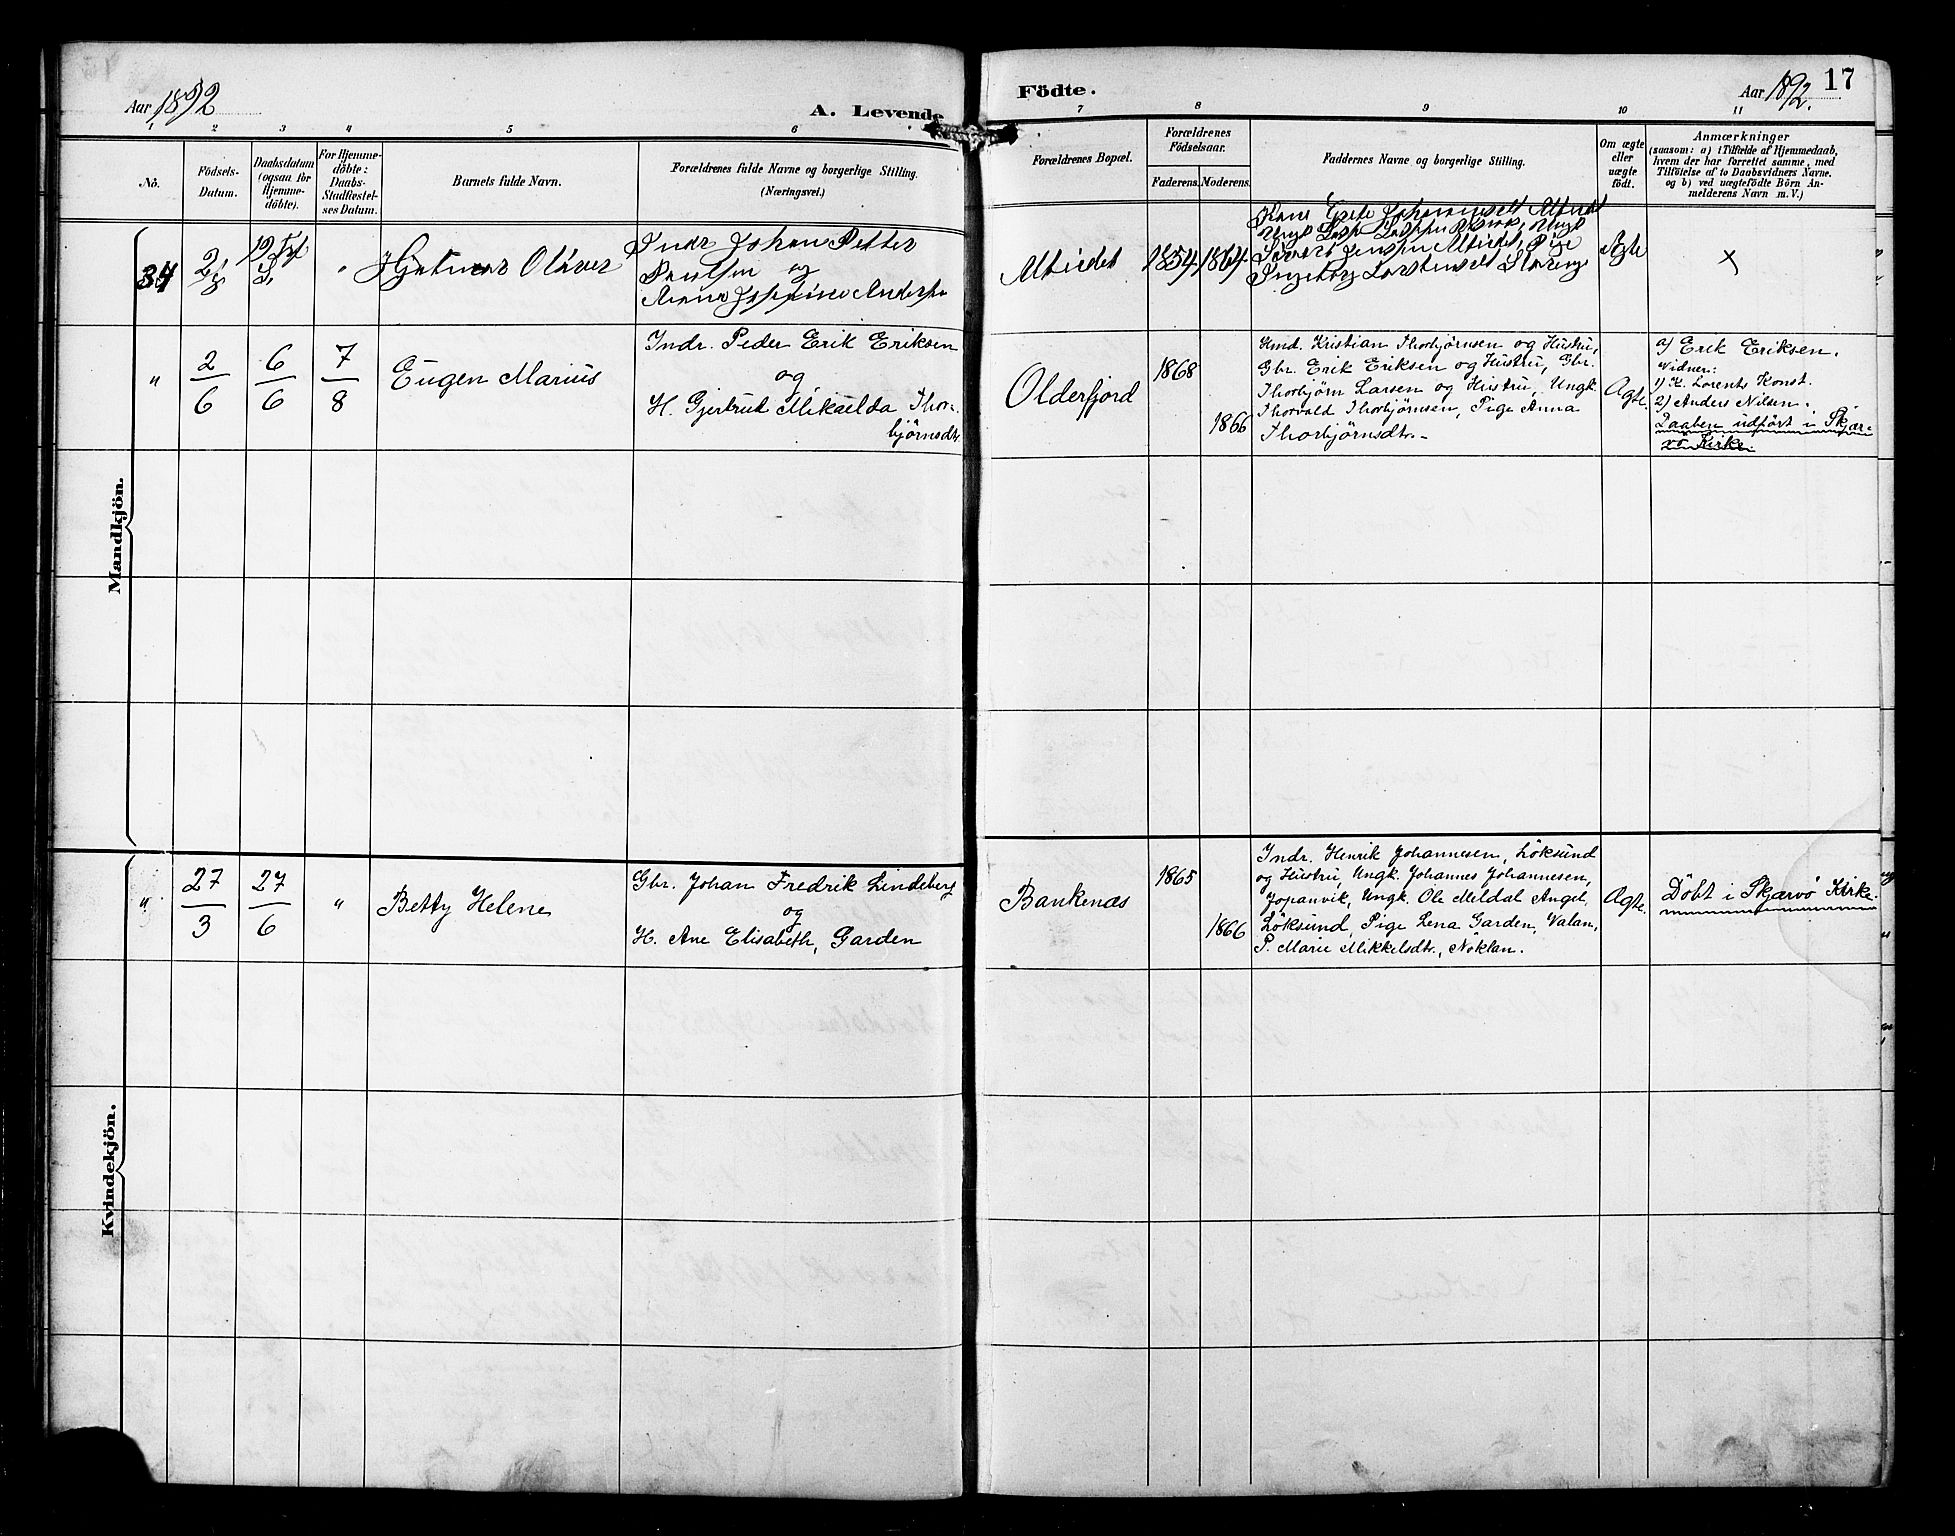 Aar 1892
A. Levende
Födte.
Aar 1892.
17
1 2 3 4 5 6 7 8 9 10 11
No.
Födsels-
Datum.
Daabsdatum
(ogsaa for
Hjemme-
döbte).
For Hjemme-
döbte:
Daabs-
Stadfæstel-
ses Datum.
Barnets fulde Navn.
Forældrenes fulde Navne og borgerlige Stilling.
(Næringsvei.)
Forældrenes Bopæl.
Forældrenes
Födselsaar.
Faderens. Moderens.
Faddernes Navne og borgerlige Stilling.
Om ægte
eller
uægte
födt.
Anmærkninger
(saasom: a) i Tilfælde af Hjemmedaab,
hvem der har forrettet samme, med
Tilföielse af to Daabsvidners Navne.
og b) ved uægtefödte Börn An-
melderens Navn m. V.)
Mandkjön.
34
"
Hjelmar Oliver
Indr Johan Petter
Paulsen og
Altidet
1854
1864.
Ægte
×
"
2/6
6/6
7/8
Eugen Marius
Indr. Peder Erik Eriksen
og
H. Gjertrud Mikaelda Thor-
bjørnsdtr.
Olderfjord
1868
1866
Hmd. Kristian Thorbjørnsen og Hustru,
Gbr. Erik Eriksen og Hustru, Gbr.
Thorbjørn Larsen og Hustru, Ungk.
Thorvald Thorbjørnsen, Pige Anna
Thorbjørnsdtr.-
Ægte.
a) Erik Eriksen.
Vidner:
1) K. Lorents Konst.
2) Anders Nilsen.
Daaben udført i Skjær-
vö Kirke.
Kvindekjön.
"
27/3
27/6
"
Betty Helene
Gbr. Johan Fredrik Lindeberg
og
H. Ane Elisabeth, Garden
Bankenæs
1865
1866
Indr. Henrik Johannesen, Löksund
og Hustru, Ungk. Johannes Johannesen,
Jopanvik, Ungk. Ole Meldal Angel,
Löksund, Pige Lena Garden, Valan,
P. Marie Mikkelsdtr., Noklan.
Ægte.
Döbt i Skjærvö Kirke.